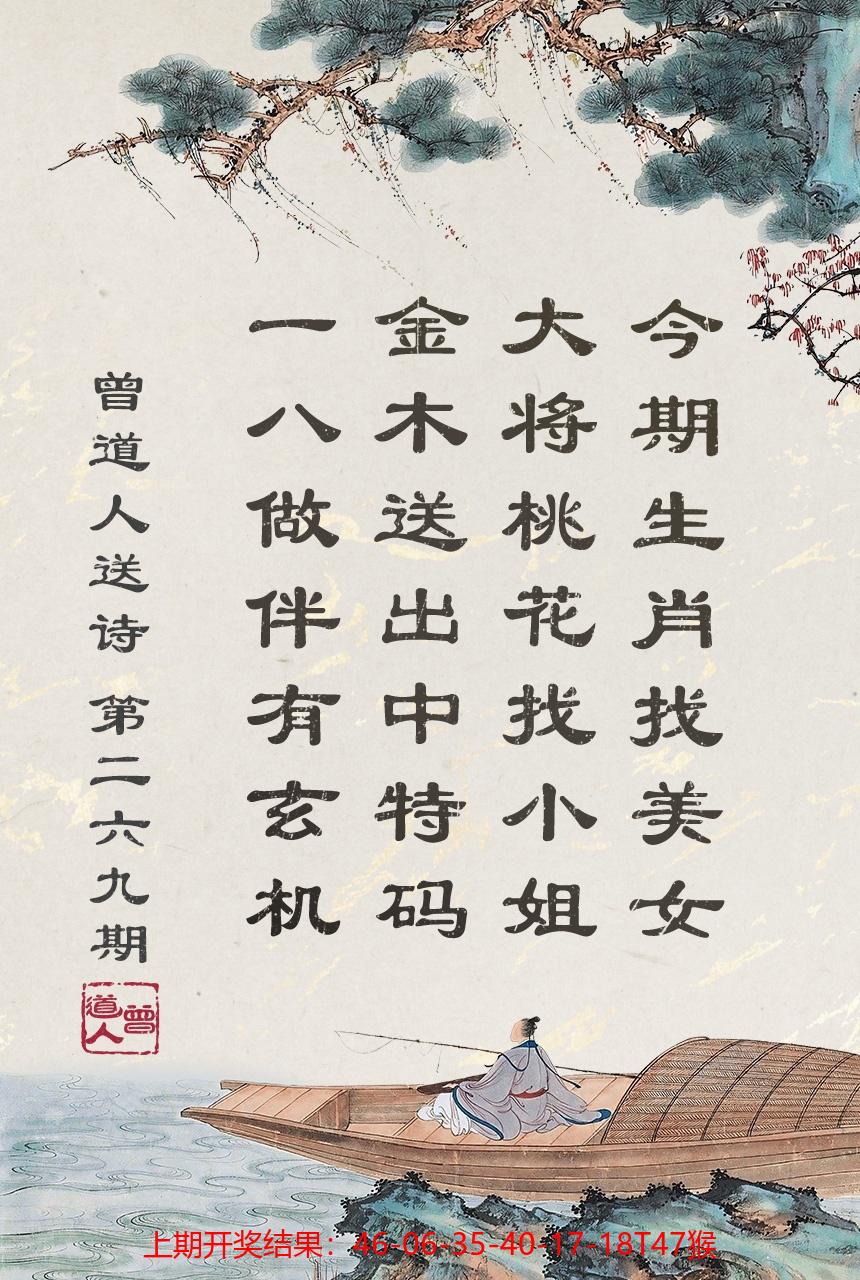 今期生肖找美女
大将桃花找小姐
金木送出中特码
一八做伴有玄机
曾道人送诗 第二六九期
曾道人
上期开奖结果：46-06-35-40-17-18T47猴